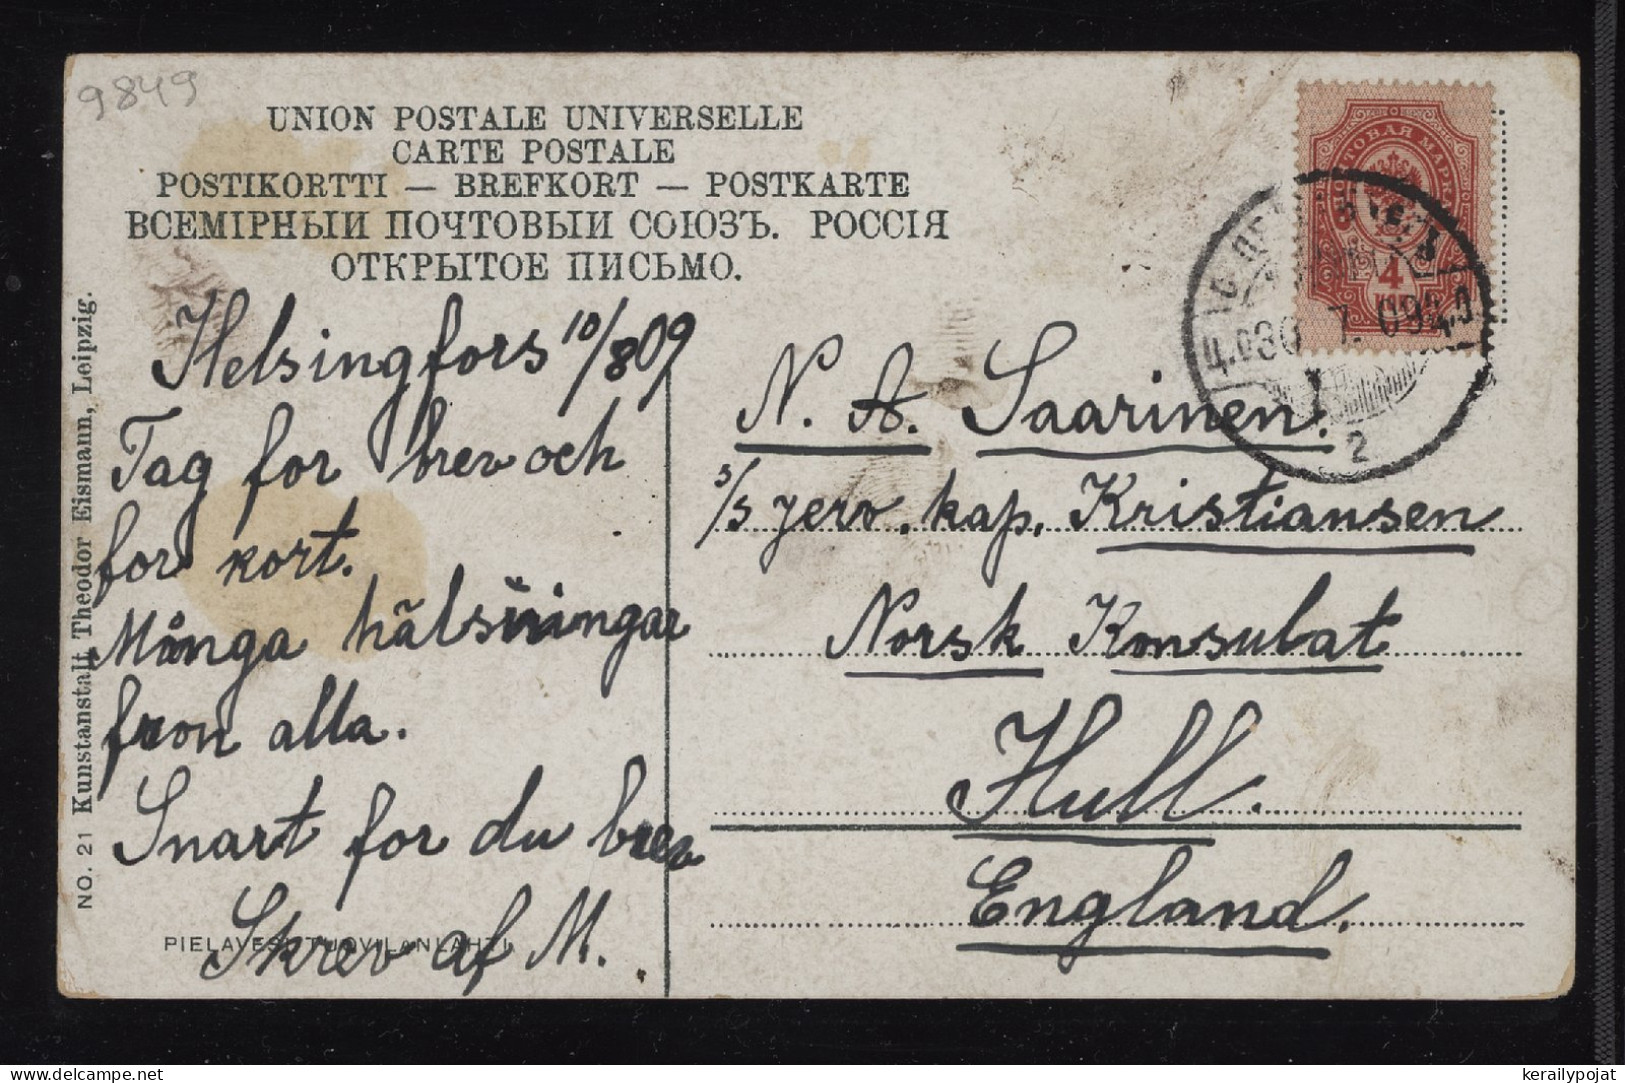 9849
UNION POSTALE UNIVERSELLE
CARTE POSTALE
POSTIKORTTI — BREFKORT — POSTKARTE
ВСЕМІРНЫИ ПОЧТОВЫИ СОЮЗЪ. РОССІЯ
ОТКРЫТОЕ ПИСЬМО.
Helsingfors 10/8 09
Tag for brev och
for kort.
Många hälsningar
fron alla.
Snart for du brev
Skrev af M.
NO. 21 Kunstanstalt Theodor Eismann, Leipzig.
PIELAVESI, TUOVILANLAHTI
ПОЧТОВАЯ МАРКА
4
30 7. 09
2
N. A. Saarinen.
s/s Jerv. kap. Kristiansen
Norsk Konsulat
Hull.
England.
delcampe.net
kerailypojat